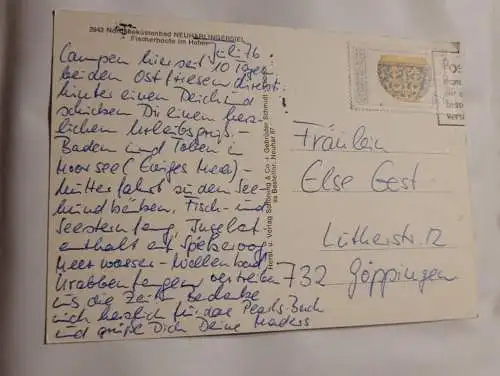 2943 Nordseeküstenbad NEUHARLINGERSIEL
Fischerboote im Hafen
Juli 76
Campen hier seit 10 Tagen
bei den Ostfriesen direkt
hinter einem Deich und
schicken Dir einen herz-
lichen Urlaubsgruß. -
Baden und Toben im
Moorsee (Ewiges Meer) -
Kutterfahrt zu den See-
hundbänken, Fisch- und
Seesternfang, Inselauf-
enthalt auf Spiekeroog,
Meerwasser-Wellenbad
Krabbenfangen vertreiben
uns die Zeit. Bedanke
mich herzlich für das Pearl S. Buch
und grüße Dich Deine
Herst. u. Verlag Schöning & Co + Gebrüder Schmidt
Bestellnr. Neuhar 67
Fräulein
Else Gest
Lutherstr. 12
732 Göppingen